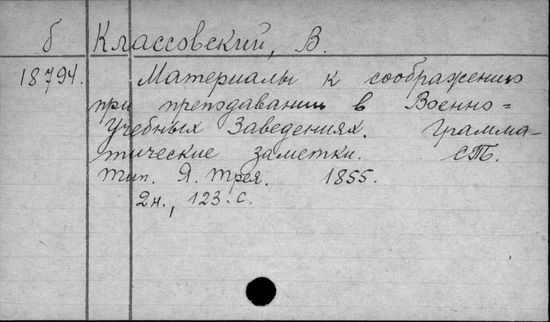 б Классовский, В.
18794. Материалы к соображению
при преподавании в Военно=
Учебных Заведениях. Грамма-
тические заметки. СПб.
тип. Я. Трея. 1855.
2н., 123 с.